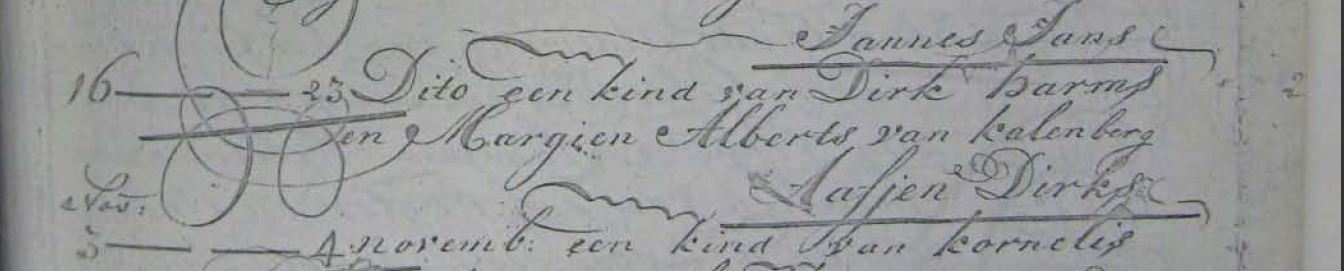 Jannes Jans
16 23 Dito een kind van Dirk harms
en Margien Alberts van kalenberg
Aafjen Dirks
Nov:
5 4 novemb: een kind van kornelis